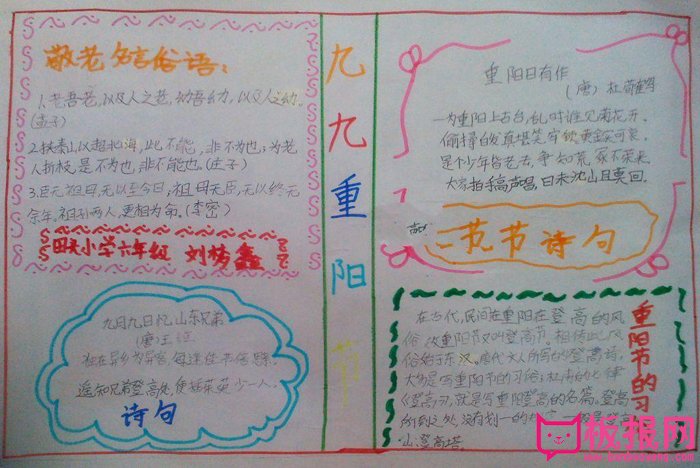 敬老名言俗语:
1.老吾老,以及人之老,幼吾幼,以及人之幼。
(孟子)
2.挟泰山以超北海,此不能,非不为也;为老
人折枝,是不为也,非不能也。(孟子)
3.臣无祖母,无以至今日,祖母无臣,无以终
余年。祖孙两人,更相为命。(李密)
小学六年级 刘梦鑫
九月九日忆山东兄弟
(唐)王
独在异乡为异客,每逢佳节倍思亲。
遥知兄弟登高处,便插茱萸少一人。
诗句
九九重阳节
重阳日有作
(唐)杜荀鹤
一为重阳上古台,乱时谁见菊花开。
偷挦白发真堪笑,牢锁黄金实可哀。
是个少年皆老去,争知荒冢不荣来。
大家拍手高声唱,日未沈山且莫回。
节诗句
重阳节的习
在古代,民间在重阳有登高的风
俗,故重阳节又叫登高节。相传此风
俗始于东汉。唐代文人所写的登高诗
大多是写重阳节的习俗;杜甫的七律
《登高》,就是写重阳登高的名篇。登高
所到之处,没有划一的
山、登高塔。
板报网